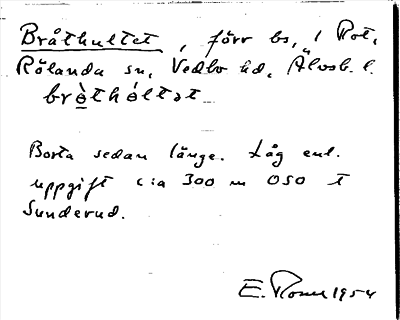 Bråthultet, förr bs, i Rot.
Rölanda sn, Vedbo hd, Älvsb. l.
brɵ̀thɵ́ltət
Borta sedan länge. Låg enl.
uppgift c:a 300 m OSO t
Sunderud.
E. 1954